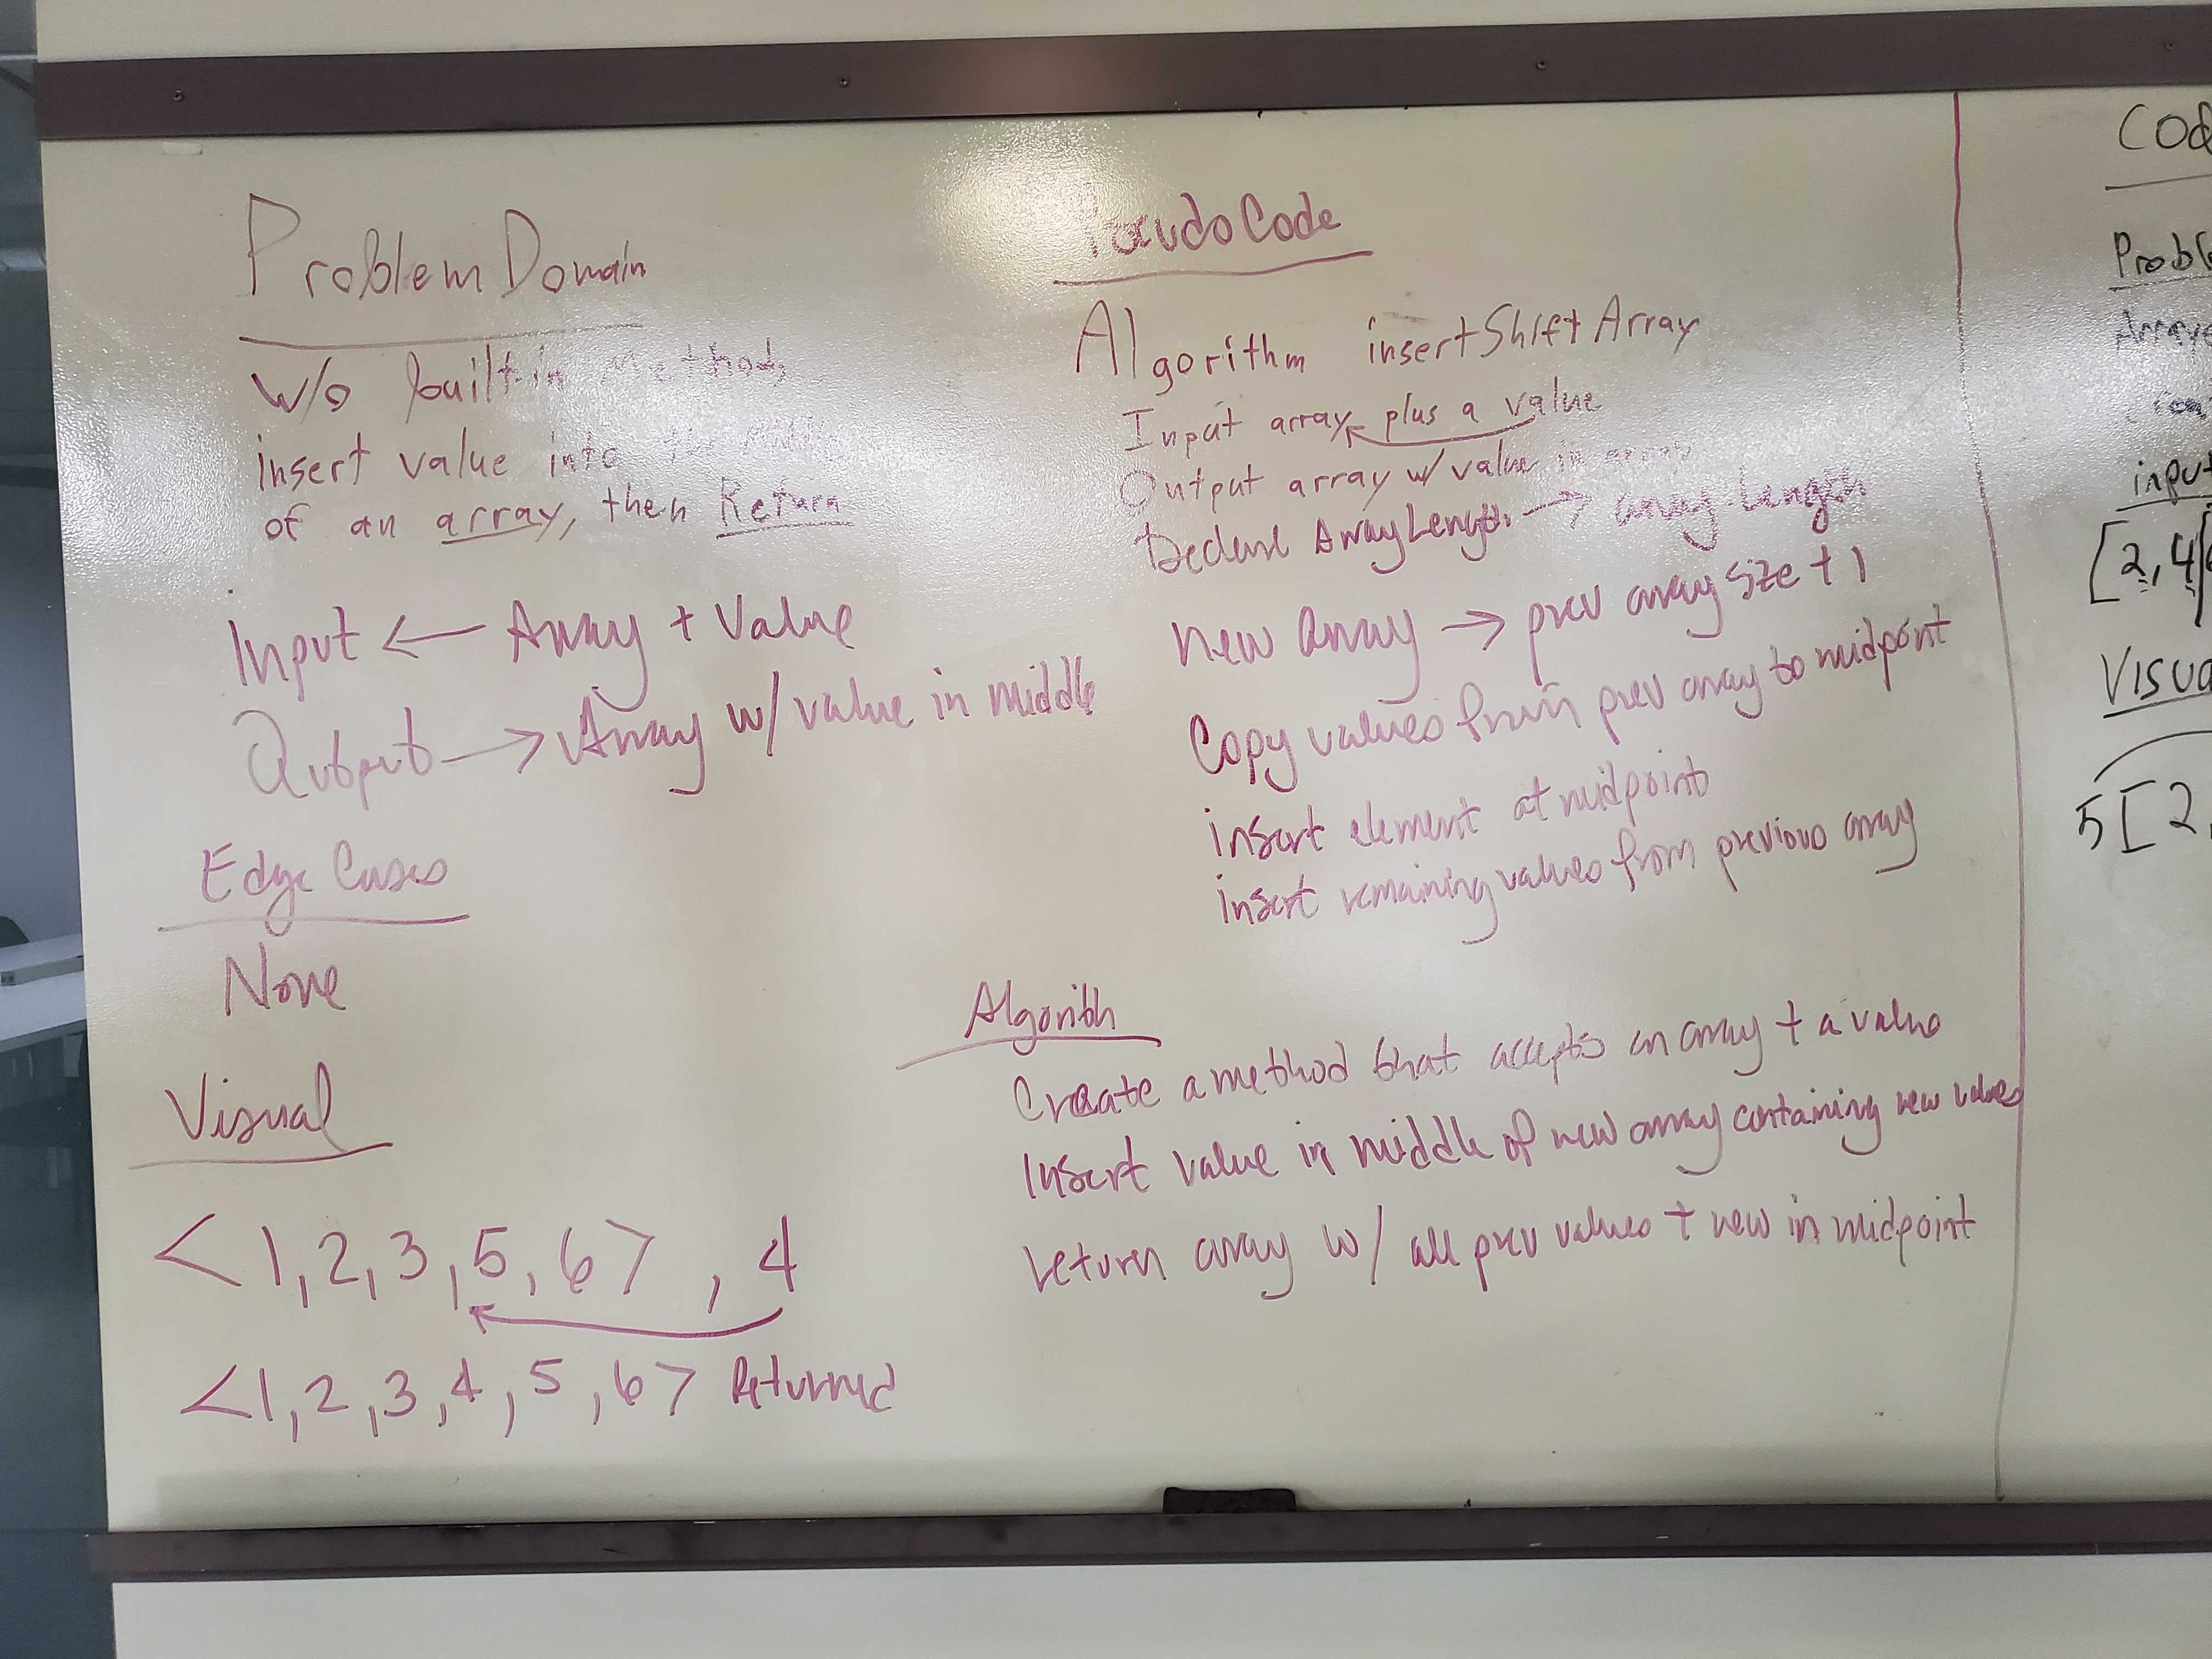 Problem Domain
w/o built-in Methods
insert value into the Middle
of an array, then Return
Input <— Array + Value
Output —> Array w/ value in middle
Edge Cases
None
Visual
<1,2,3,5,6> , 4
<1,2,3,4,5,6> Returned
PseudoCode
Algorithm insertShiftArray
Input array plus a value
Output array w/ value in array
Declare ArrayLength —> array.length
new array —> prev array size + 1
Copy values from prev array to midpoint
insert element at midpoint
insert remaining values from previous array
Algorith
Create a method that accepts an array + a value
Insert value in middle of new array containing new values
return array w/ all prev values + new in midpoint
Cod
Probl
Array
input
[2,4
Visua
5[2,